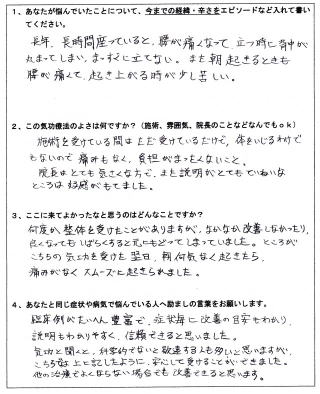 1、あなたが悩んでいたことについて、今までの経緯・辛さをエピソードなど入れて書いてください。
長年、長時間座っていると、腰が痛くなって、立つ時に背中が
丸まってしまい、まっすぐに立てない。また朝起きるときも
腰が痛くて、起き上がる時が少し苦しい。
2、この気功療法のよさは何ですか？（施術、雰囲気、院長のことなどなんでもok）
施術を受けている間はただ受けているだけで、体をいじるわけで
もないので痛みもなく、負担がまったくないこと。
院長はとても気さくな方で、また説明がとてもていねいな
ところは好感がもてました。
3、ここに来てよかったなと思うのはどんなことですか？
何度か整体を受けたことがありますが、なかなか改善しなかったり、
良くなってもしばらくすると元にもどってしまっていました。ところが
こちらの気功を受けた翌日、朝何気なく起きたら、
痛みがなくスムーズに起きられました。
4、あなたと同じ症状や病気で悩んでいる人へ励ましの言葉をお願いします。
臨床例がたいへん豊富で、症状毎に改善の目安もわかり、
説明もわかりやすく、信頼できると思いました。
気功と聞くと、科学的でないと敬遠する人も多いと思いますが、
こちらは上に記したように、安心して受けることができました。
他の治療でよくならない場合でも改善できると思います。